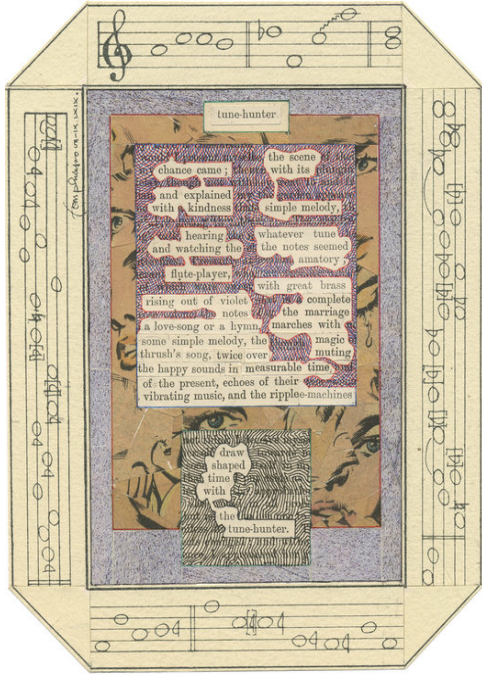 tune-hunter.
the scene
chance came;
with its
and explained
with a kindness
simple melody,
hearing
whatever tune
and watching the
the notes seemed
amatory;
flute-player,
with great brass
rising out of violet
complete
notes
the marriage
a love-song or a hymn,
marches with
some simple melody, the
magic
thrush's song, twice over
muting
the happy sounds in measurable time
of the present, echoes of their
vibrating music, and the ripplee-machines
draw
shaped
time
with
the
tune-hunter.